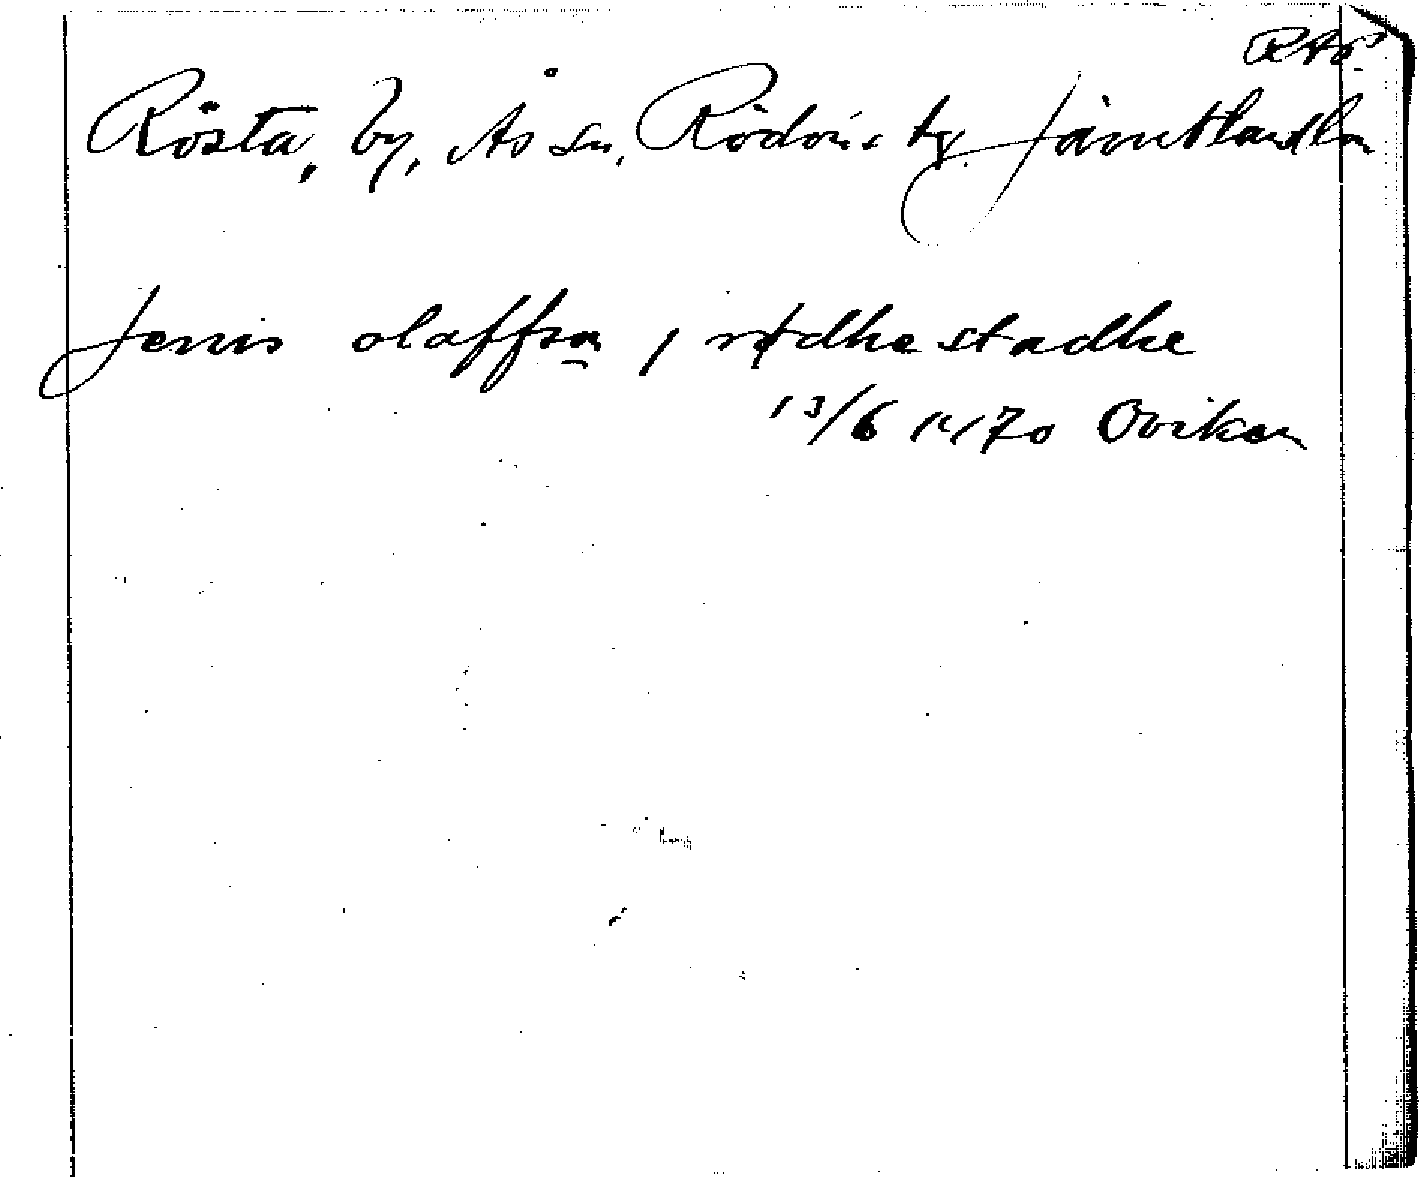 RAP.
Rösta, by, Ås sn, Rödöns tg Jämtlands ln
Jenis olaffson / rødhestadhe
13/6 1470 Oviken